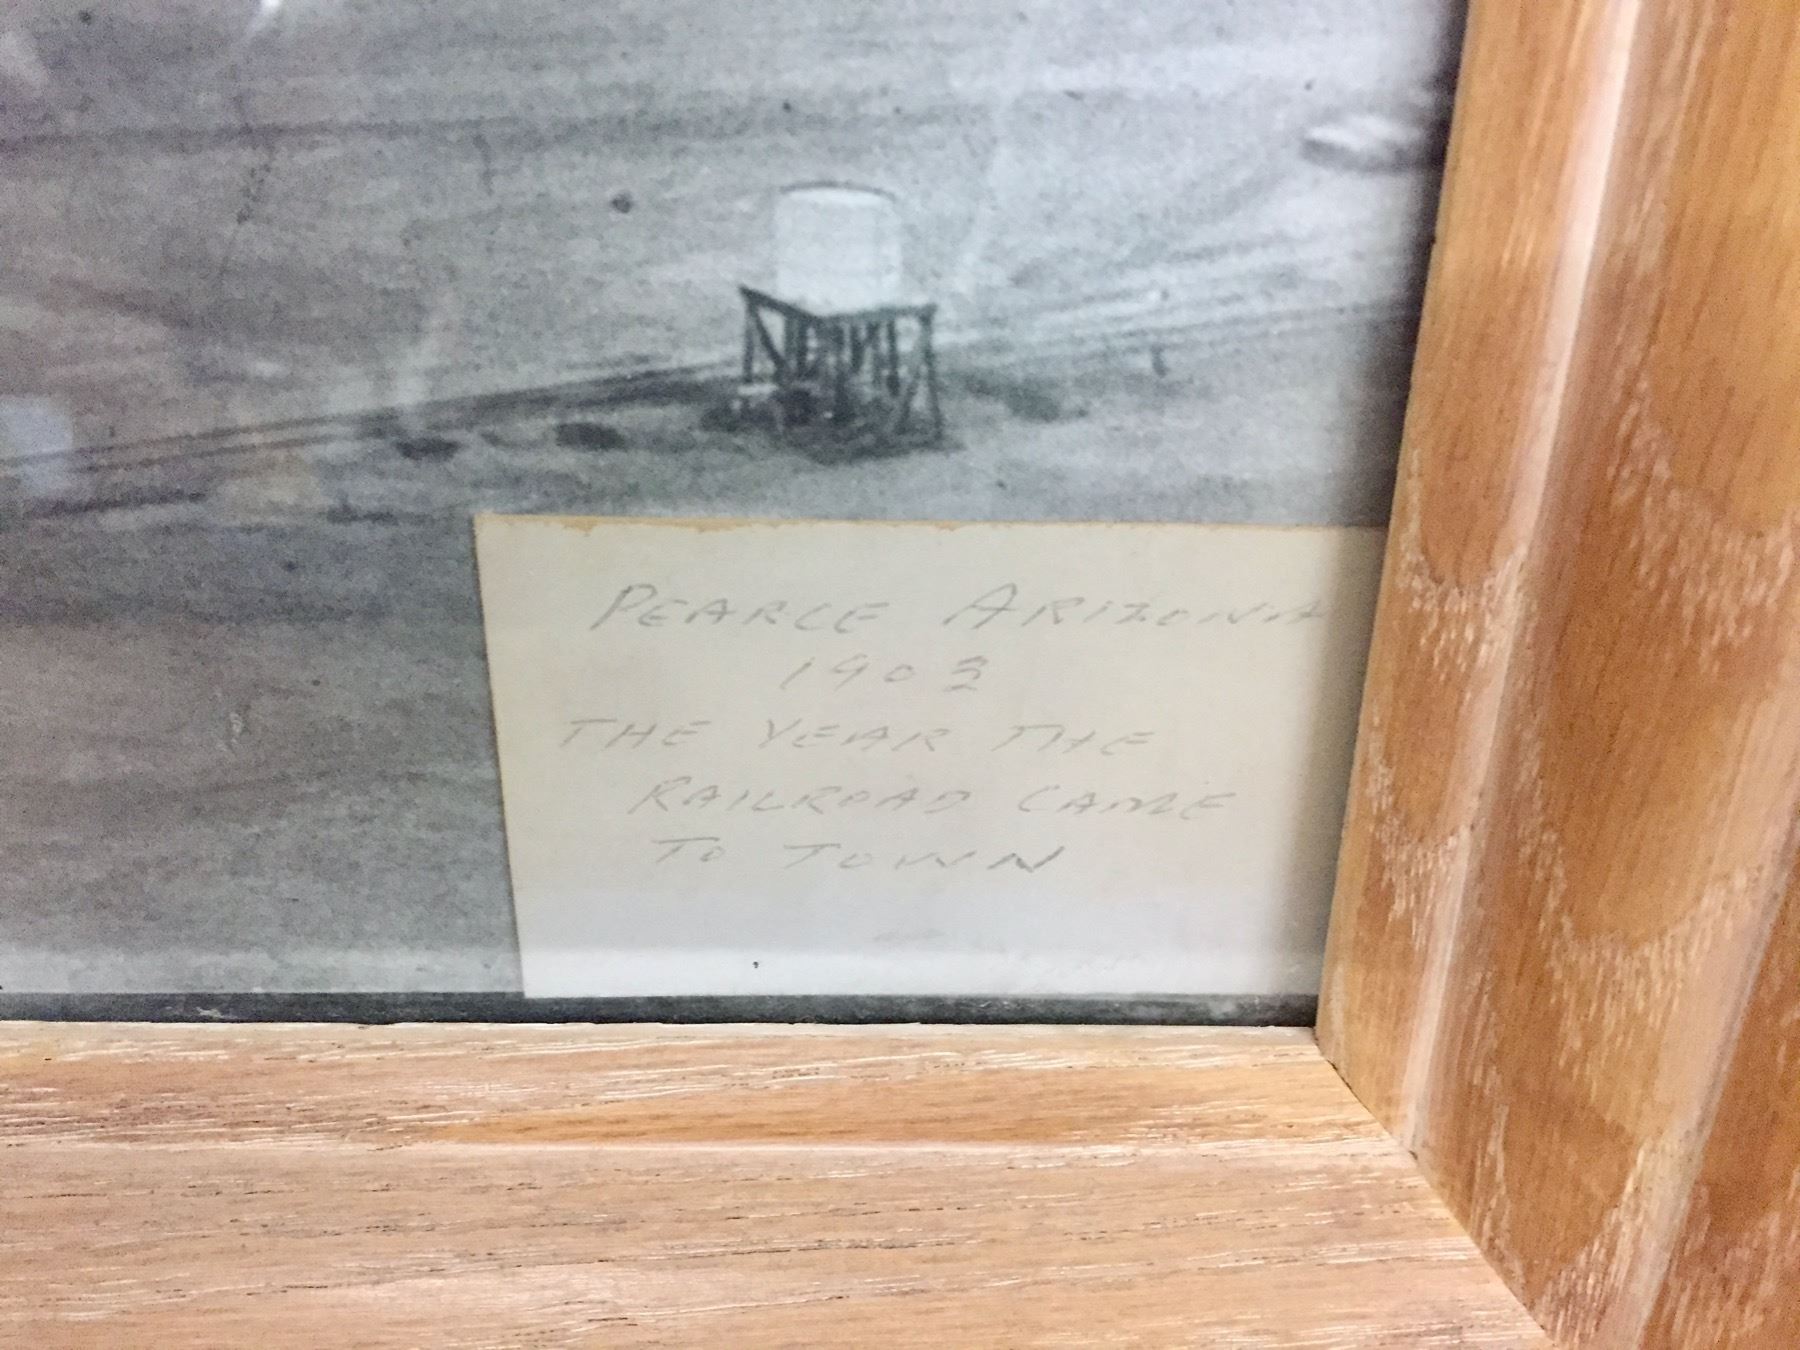 PEARCE ARIZONA
1903
THE YEAR THE
RAILROAD CAME
TO TOWN